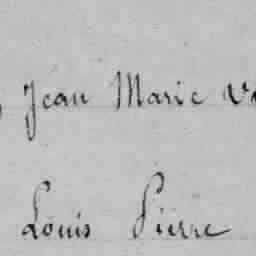 Jean Marie
Louis Pierre